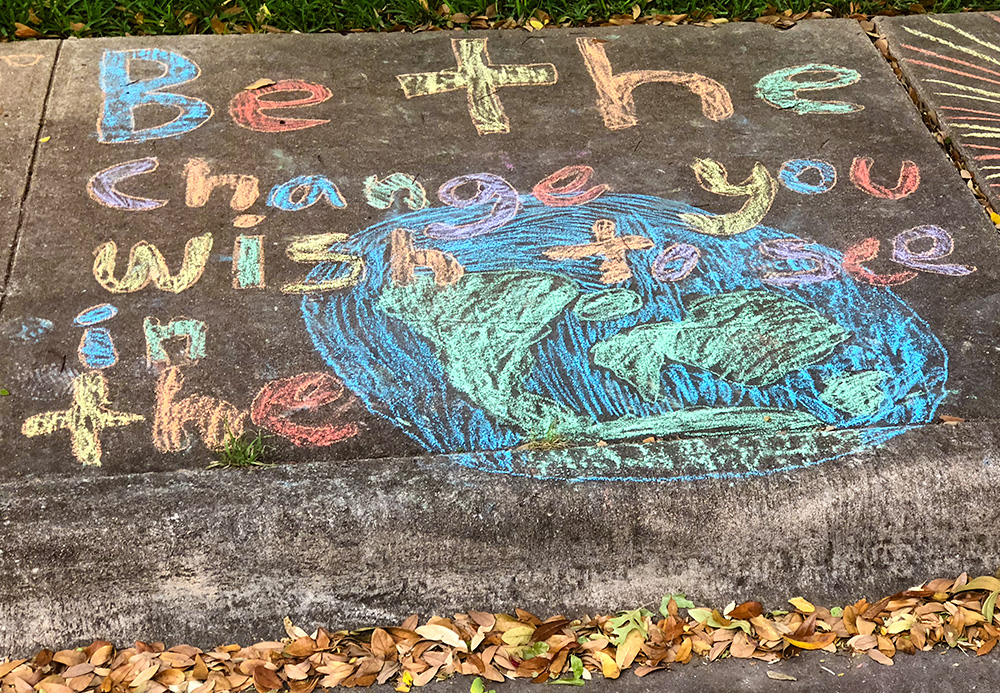 Be the
change you
wish to see
in
the